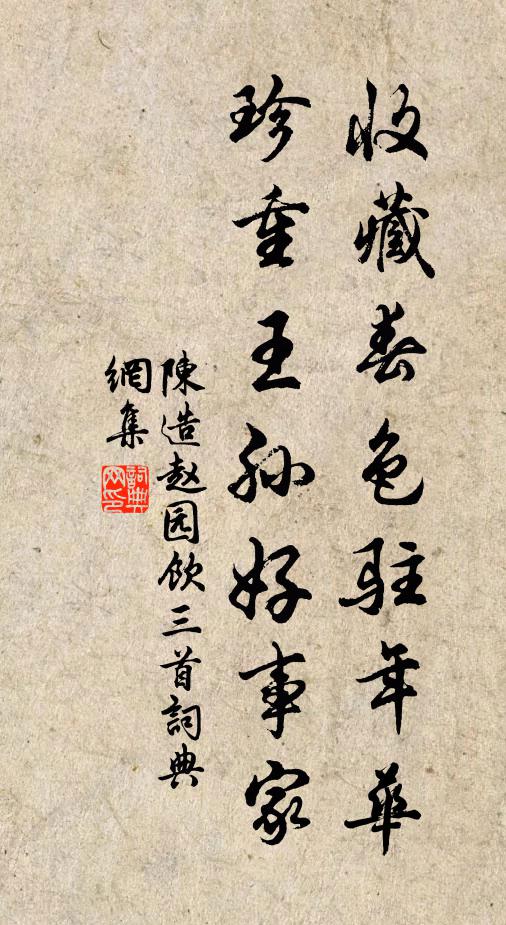 收藏春色驻年華
珍重王孙好事家
陳造赵园饮三首詞典
網集
詞典
网印